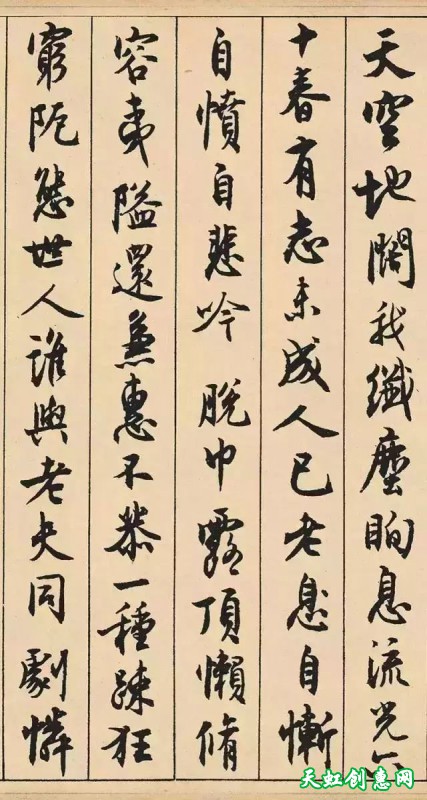 天空地闊我纖塵眴息流光六
十春有志未成人已老息自慚
自憤自悲吟 脫巾露頂懶脩
容夷隘還兼惠不恭一種疎狂
窮阨態世人誰與老夫同 劇憐
天虹创意网